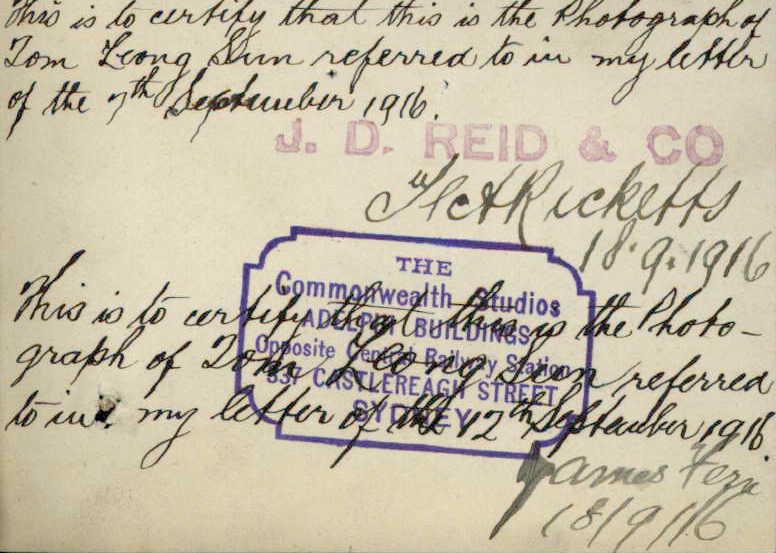 This is to certify that this is the Photograph of
Tom Leong Sun referred to in my letter
of the 7th September 1916.
J. D. REID & CO
Ricketts
18.9.1916
THE
Commonwealth Studios
BUILDINGS
Opposite Central Railway Station
837 CASTLEREAGH STREET
SYDNEY
This is to certify that this is the Photo-
graph of Tom Leong Sun referred
to in my letter of the 12th September 1916
James
18/9/16